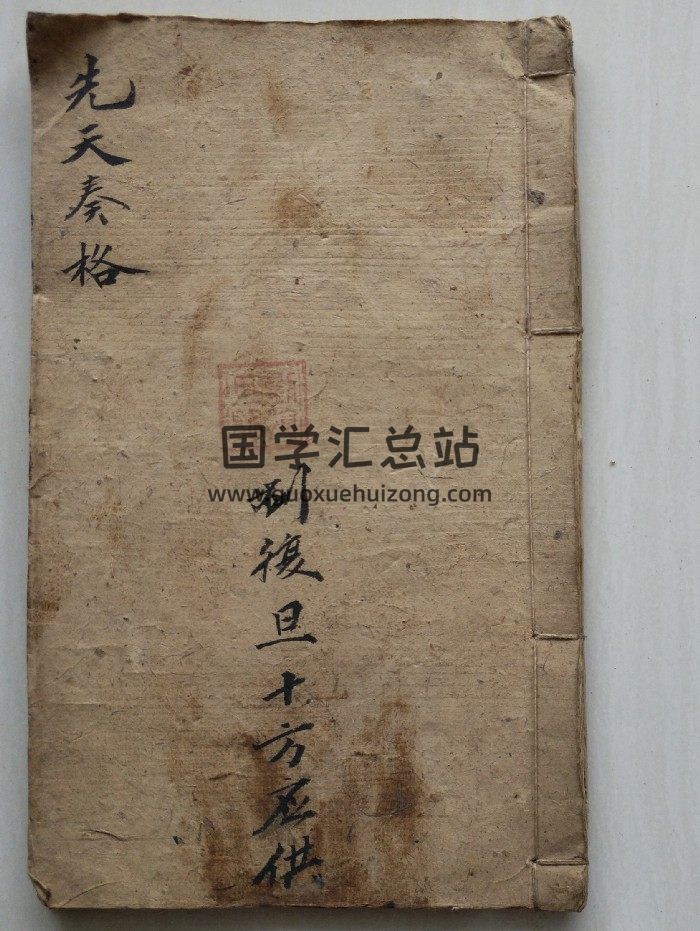 先天奏格
国学汇总站
www.guoxuehuizong.com
復旦十方应供